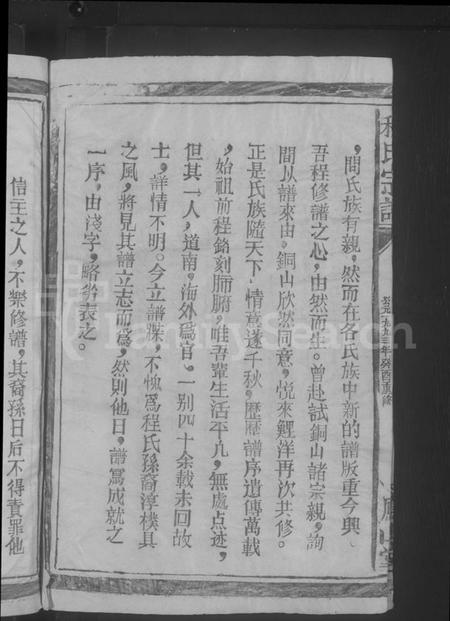 程氏宗譜
公元一九九三年癸酉重修
，問氏族有親，然而在各氏族中新的譜版重今興、
吾程修譜之心，由然而生。曾赴試銅山諸宗親，詢
間以譜來由，銅山欣然同意，悅來鯉洋再次共修。
正是氏族隨天下，情意遂千秋，歷歷譜序遺傳萬載
，始祖前程銘刻肺腑，唯吾輩生活平凡，無處点迹，
但其一人，道南，海外爲官。一别四十余載未回故
士，詳情不明。今立譜牒，不愧爲程氏孫裔淳樸具
之風，將見其譜立志而爲，然則他日，譜爲成就之
一序，由淺字，略為表之。
信主之人，不樂修譜，其裔孫日后不得責罪他
FamilySearch